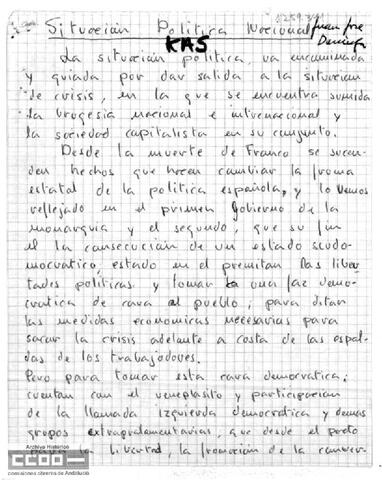 Situación Politica Nacional
Juan José
KAS
La situación politica, va encaminada
y guiada por dar salida a la situacion
de crisis, en la que se encuentra sumida
la burgesia nacional e internacional y
la sociedad capitalista en su conjunto.
Desde la muerte de Franco se suceden
den hechos que hacen cambiar la froma
estatal de la politica española, y lo vemos
reflejado en el primen gobierno de la
monarquia y el segundo, que su fin
el la consecución de un estado seudo-
mocratico, estado en el premitan las liber-
tades politicas y tomar la una faz demo-
cratica de cara al pueblo; para ditar
las medidas economicas necesarias para
sacar la crisis adelante a costa de las espal-
das de los trabajadores.
Pero para tomar esta cara democratica;
cuentan con el veneplasito y participacion
de la llamada izquierda democratica y demas
grupos extrapralamentarias, que desde el pacto
para la libertad, la promocion de la
Archivo Histórico
CCOO
comisiones obreras de Andalucía